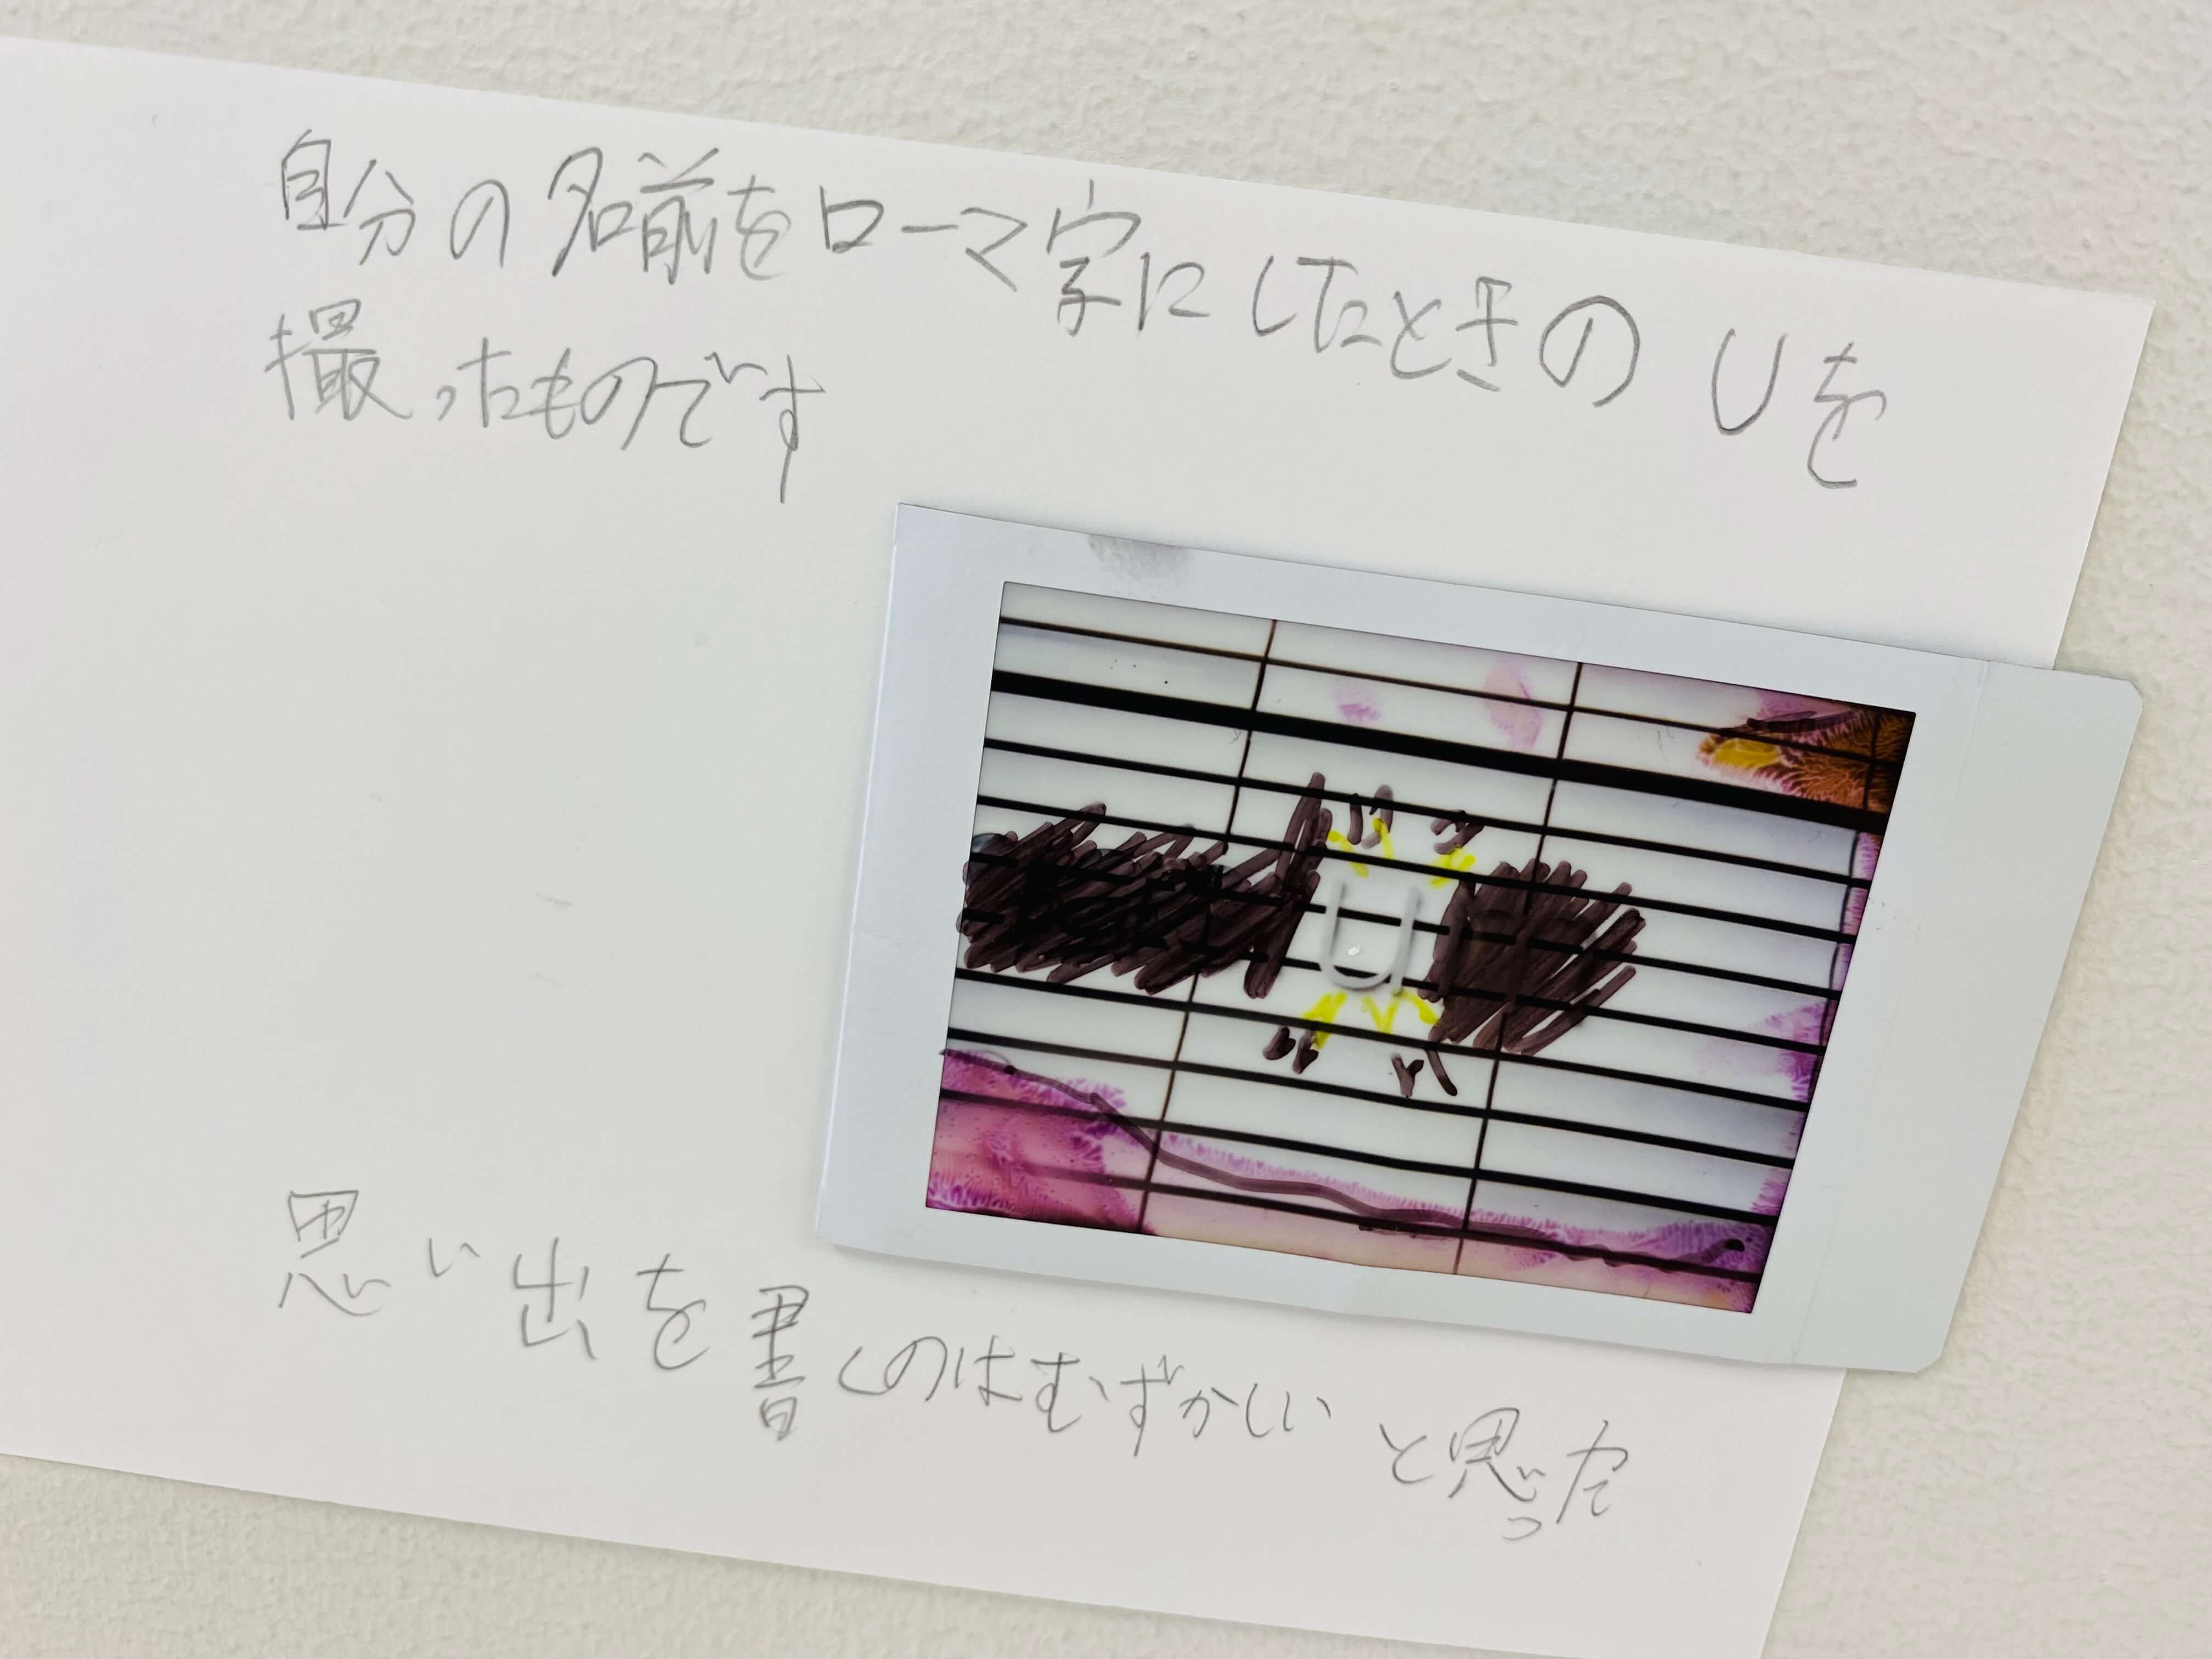 自分の名前をローマ字にしたときのUを
撮ったものです
U
思い出を書くのはむずかしいと思った